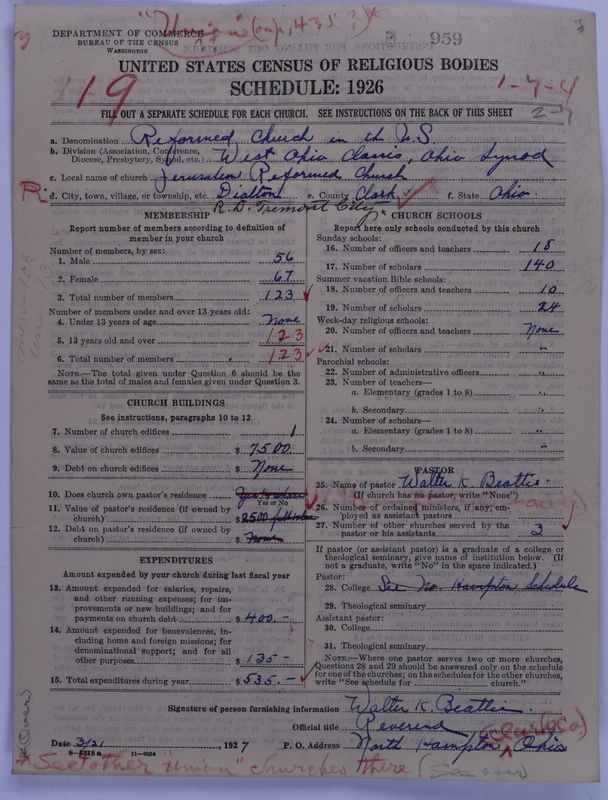 DEPARTMENT OF COMMERCE
BUREAU OF THE CENSUS
WASHINGTON
959
UNITED STATES CENSUS OF RELIGIOUS BODIES
SCHEDULE: 1926
119
1-7-4
FILL OUT A SEPARATE SCHEDULE FOR EACH CHURCH. SEE INSTRUCTIONS ON THE BACK OF THIS SHEET
a. Denomination Reformed Church in the U.S.
b. Division (Association, Conference, Diocese, Presbytery, Synod, etc.) West Ohio Classis, Ohio Synod
c. Local name of church Jerusalem Reformed Church
d. City, town, village, or township, etc. Dialton e. County Clark f. State Ohio
R.D. Tremont City
MEMBERSHIP
Report number of members according to definition of
member in your church
Number of members, by sex:
1. Male 56
2. Female 67
3. Total number of members 123
Number of members under and over 13 years old:
4. Under 13 years of age None
5. 13 years old and over 123
6. Total number of members 123
NOTE.—The total given under Question 6 should be
same as the total of males and females given under Question 3.
CHURCH BUILDINGS
See instructions, paragraphs 10 to 12
7. Number of church edifices 1
8. Value of church edifices $ 7500
9. Debt on church edifices $ None
10. Does church own pastor's residence
Yes or No
11. Value of pastor's residence (if owned by
church) $ 2500
12. Debt on pastor's residence (if owned by
church) $ None
EXPENDITURES
Amount expended by your church during last fiscal year
13. Amount expended for salaries, repairs,
and other running expenses; for im-
provements or new buildings; and for
payments on church debt $ 400.-
14. Amount expended for benevolences, in-
cluding home and foreign missions; for
denominational support; and for all
other purposes $ 135-
15. Total expenditures during year $ 535.-
CHURCH SCHOOLS
Report here only schools conducted by this church
Sunday schools:
16. Number of officers and teachers 18
17. Number of scholars 140
Summer vacation Bible schools:
18. Number of officers and teachers 10
19. Number of scholars 24
Week-day religious schools:
20. Number of officers and teachers None
21. Number of scholars "
Parochial schools:
22. Number of administrative officers "
23. Number of teachers—
a. Elementary (grades 1 to 8) "
b. Secondary "
24. Number of scholars—
a. Elementary (grades 1 to 8) "
b. Secondary "
PASTOR
25. Name of pastor Walter K. Beattie
(If church has no pastor, write "None")
26. Number of ordained ministers, if any, em-
ployed as assistant pastors
27. Number of other churches served by the
pastor or his assistants
If pastor (or assistant pastor) is a graduate of a college or
theological seminary, give name of institution below. (If
not a graduate, write "No" in the space indicated.)
Pastor:
28. College See No. Hampton Schedule
29. Theological seminary
Assistant pastor:
30. College
31. Theological seminary
NOTE.—Where one pastor serves two or more churches,
Questions 28 and 29 should be answered only on the schedule
for one of the churches; on the schedules for the other churches,
write "See schedule for church."
Signature of person furnishing information Walter K. Beattie
Official title Reverend
(Clark Co.)
Date 3/21 1927 P. O. Address North Hampton, Ohio
8-551 8 a 11-9064
See other "union" churches there (See over)